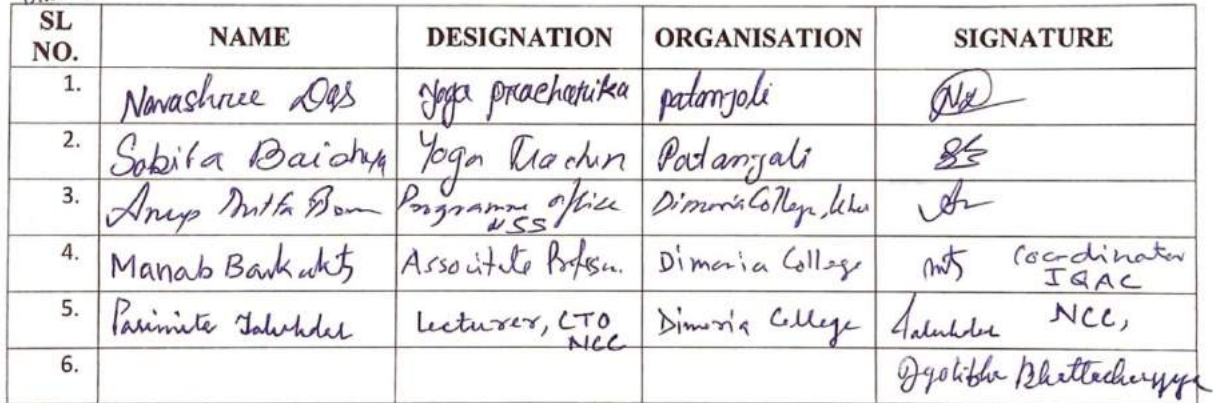 SL NO. NAME DESIGNATION ORGANISATION SIGNATURE
1. Navashree Das Yoga prachatika patanjoli
2. Sabita Baishya Yoga Patanjali
3. Anup Programme office NSS Dimoria College,
4. Manab Barkakti Associtate Profesr. Dimoria College Coordinator IQAC
5. Parimita Talukdar Lecturer, CTO NCC Dimoria College Talukdar NCC,
6. Jyotibha Bhattacharyya